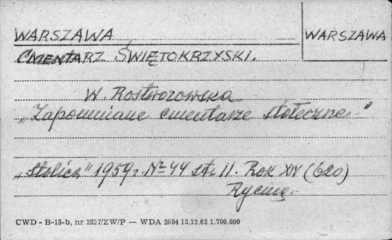 WARSZAWA
WARSZAWA
CMENTARZ ŚWIĘTOKRZYSKI.
W. Rostworowska
„Zapomniane cmentarze stołeczne"
„Stolica" 1959 r. № 44 st. 11. Rok XIV (620)
Ryciny.
CWD - B-15-b, nr 2827/ZW/P — WDA 2694 13.12.62 1.700.000